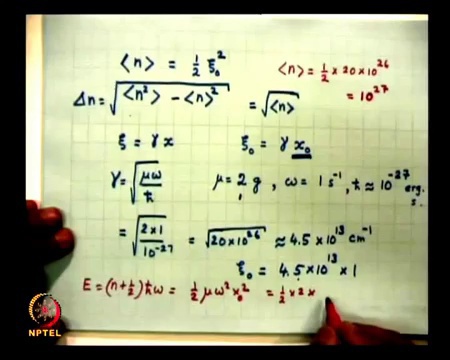 <n> = 1/2 ξ₀²
<n> = 1/2 × 20 × 10²⁶
= 10²⁷
Δn = √(<n²> − <n>²) = √<n>
ξ = γ x    ξ₀ = γ x₀
γ = √(μω/ħ)    μ = 2 g, ω = 1 s⁻¹, ħ ≈ 10⁻²⁷ erg. s.
= √(2 × 1/10⁻²⁷) = √(20 × 10²⁶) ≈ 4.5 × 10¹³ cm⁻¹
ξ₀ = 4.5 × 10¹³ × 1
E = (n + 1/2) ħω = 1/2 μω² x₀² = 1/2 × 2 ×
NPTEL